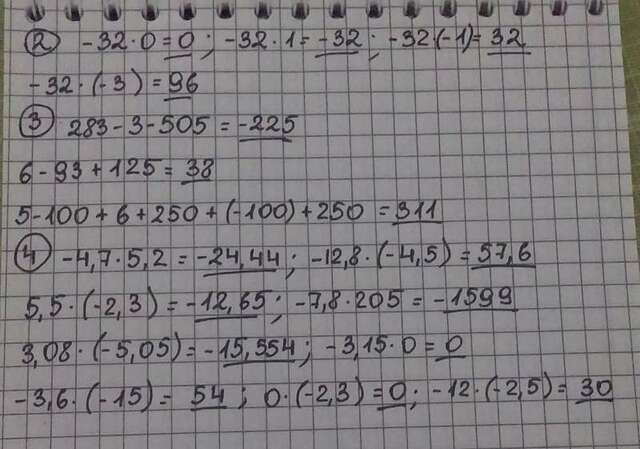 ② -32·0=0; -32·1=-32; -32·(-1)=32
-32·(-3)=96
③ 283-3-505=-225
6-93+125=38
5-100+6+250+(-100)+250=311
④ -4,7·5,2=-24,44; -12,8·(-4,5)=57,6
5,5·(-2,3)=-12,65; -7,8·205=-1599
3,08·(-5,05)=-15,554; -3,15·0=0
-3,6·(-15)=54; 0·(-2,3)=0; -12·(-2,5)=30